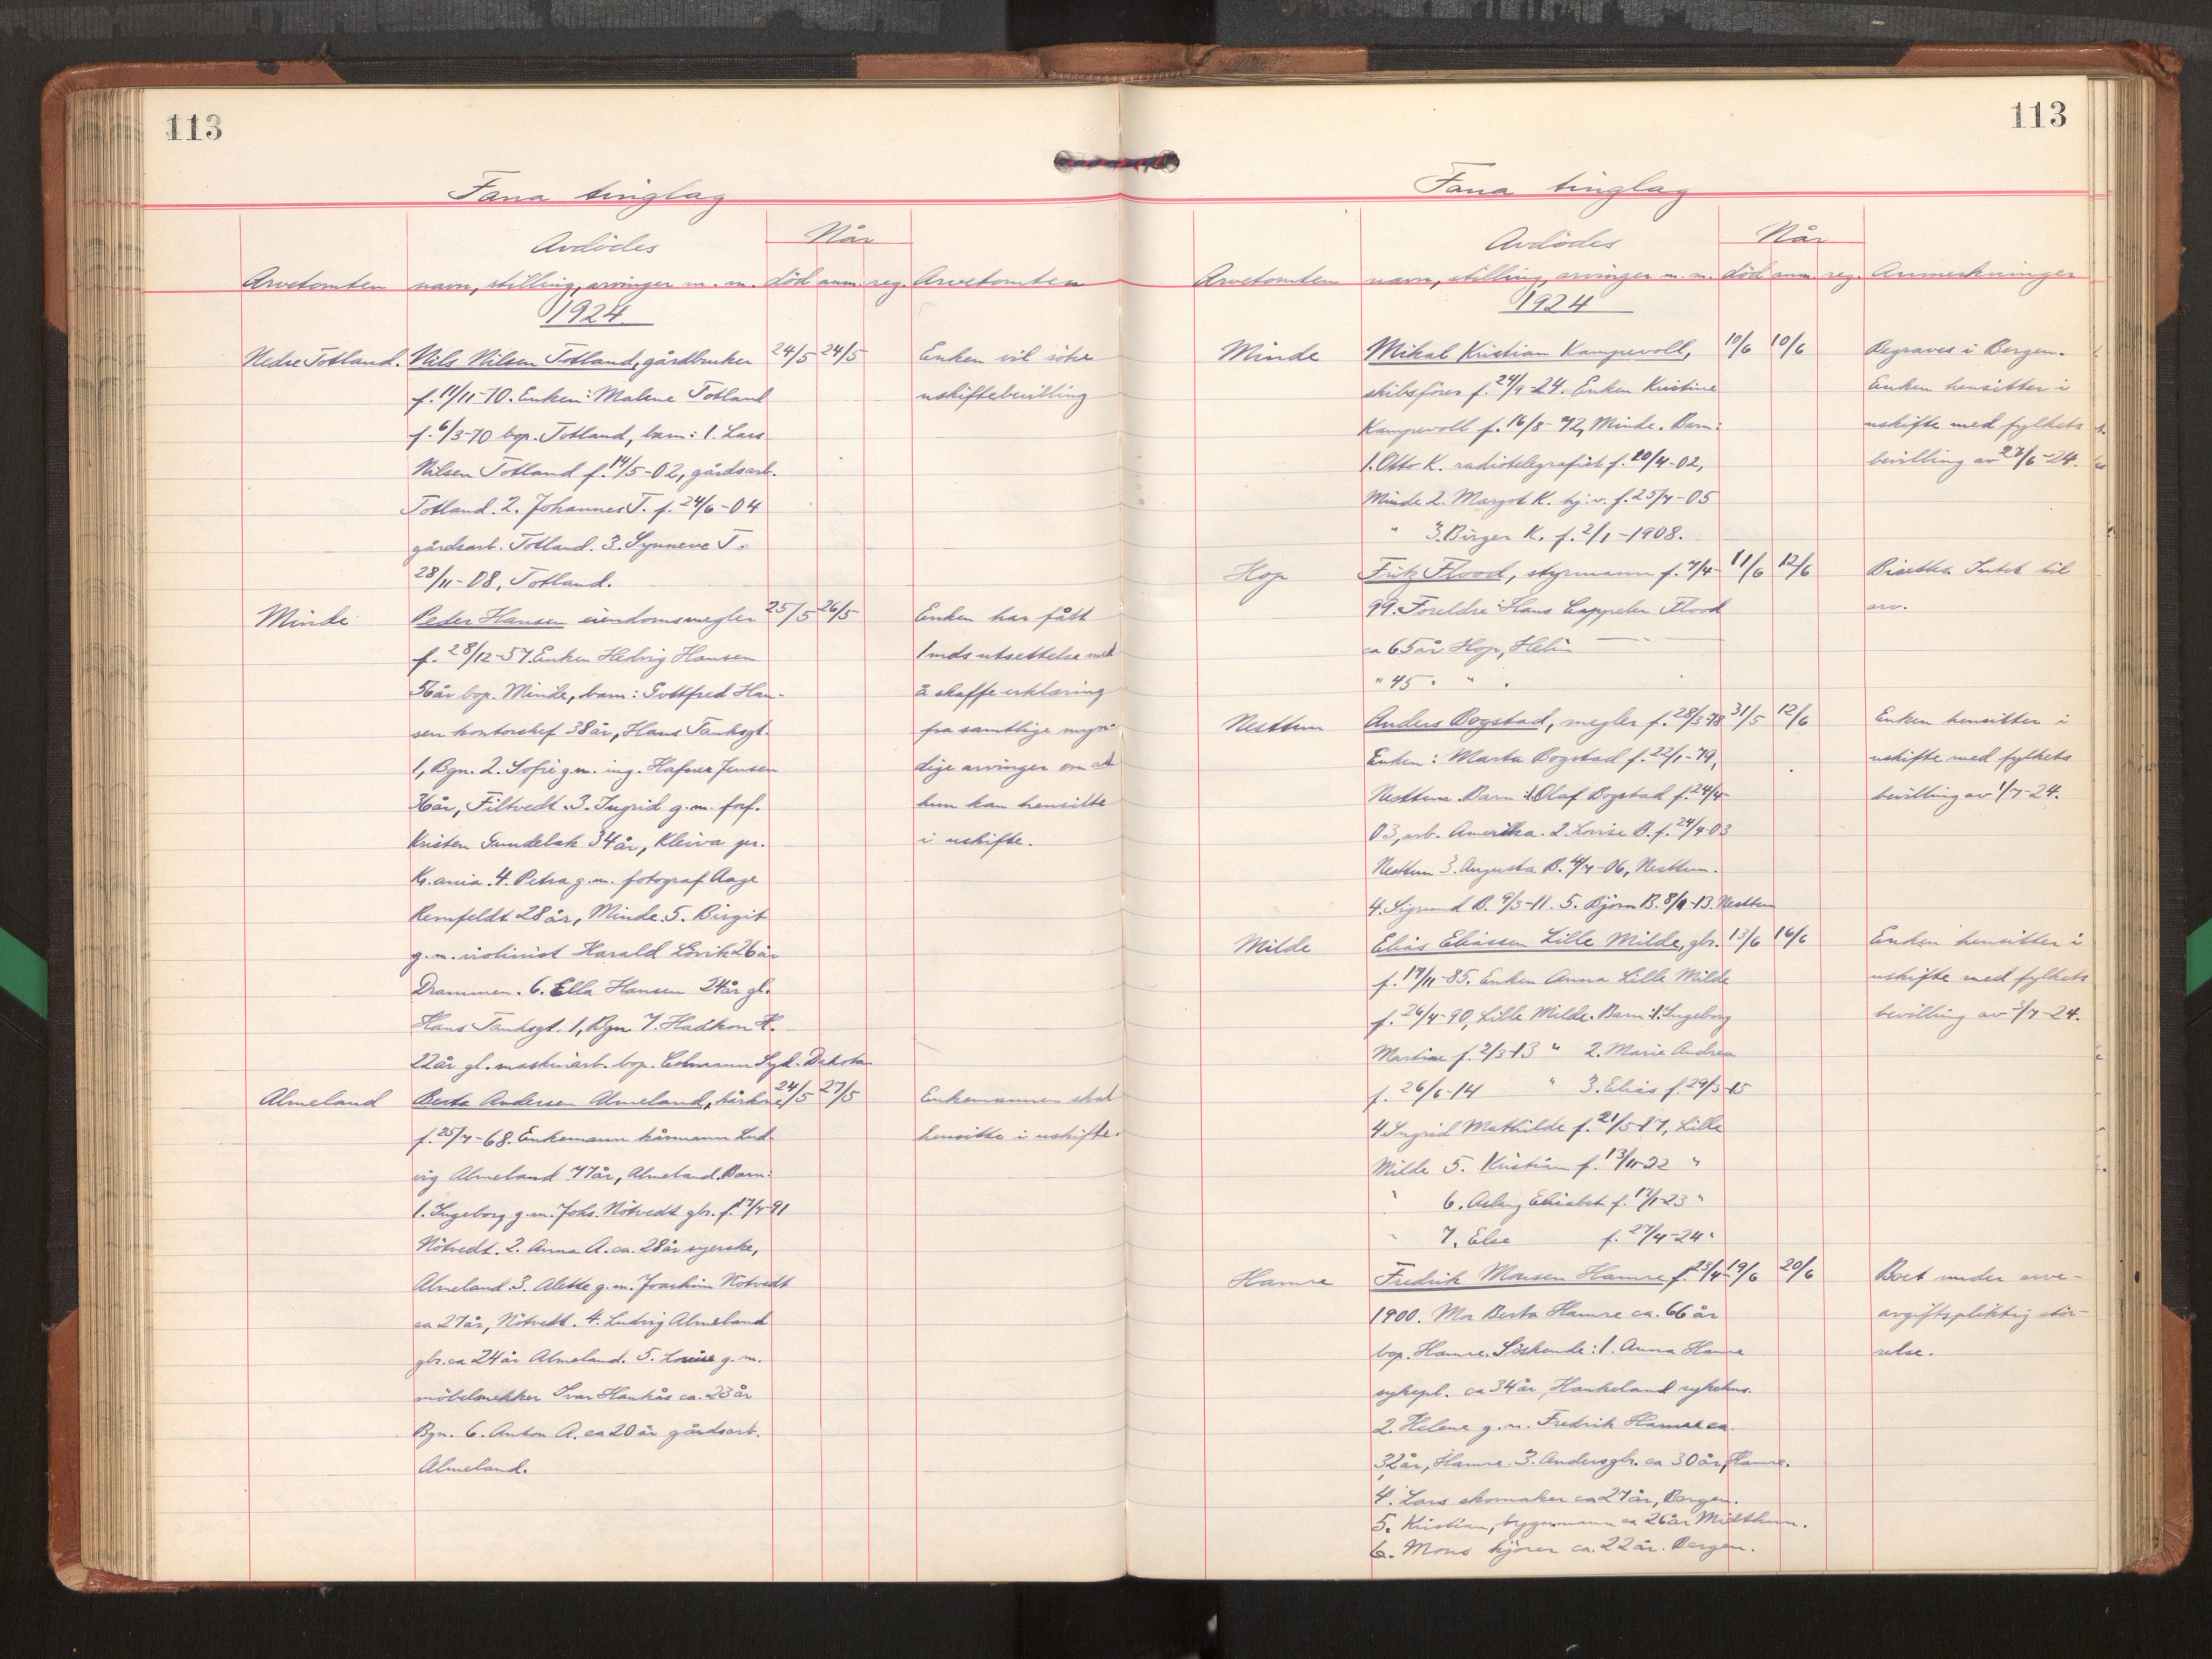 113
Fana tinglag
Avdödes
Når
Arvetomten navn, stilling, arvinger m. m. död anm. reg. Arvetomten
1924
Nedre Totland. Nils Nilsen Totland, gårdbruker 24/5 24/5 Enken vil söke
f. 11/11-70. Enken: Malene Totland uskiftebevilling
f. 6/3-70 bop. Totland, barn: 1. Lars
Nilsen Totland f. 14/5-02, gårdsarb.
Totland. 2. Johannes T. f. 24/6-04
gårdsarb. Totland. 3. Synneve T.
28/11-08, Totland.
Minde Peder Hansen eiendomsmegler 25/5 26/5 Enken har fått
f. 28/12-57. Enken Hedvig Hansen 1 mds utsettelse med
56 år bop. Minde, barn: Gottfred Han- å skaffe erklæring
sen kontorchef 38 år, Hans Tanksgt. fra samtlige myn-
1, Bgn. 2. Sofie g.m. ing. Hafner Jensen dige arvinger om at
36 år, Filtvedt. 3. Ingrid g.m. forf. hun kan hensitte
Kristen Gundelak 34 år, Kleiva pr. i uskifte.
Kr.ania. 4. Petra g.m. fotograf Aage
Remfeldt 28 år, Minde. 5. Birgit
g.m. violinist Harald Lövik 26 år
Drammen. 6. Ella Hansen 24 år gl.
Hans Tanksgt. 1, Bgn 7. Haakon H.
22 år gl. maskinarb. bop. Colmann Syd-Dakota
Almeland Berta Andersen Almeland, kårkone 24/5 27/5 Enkemannen skal
f. 25/7-68. Enkemann kårmann Lud- hensitte i uskifte.
vig Almeland 77 år, Almeland. Barn:
1. Ingeborg g.m. Johs. Nötvedt gbr. f. 17/7-91
Nötvedt. 2. Anna A. ca. 28 år syerske,
Almeland 3. Alette g.m. Joachim Nötvedt
ca 27 år, Nötvedt. 4. Ludvig Almeland
gbr. ca 24 år Almeland. 5. Lovise g.m.
möbelsnekker Ivar Haukås ca. 23 år
Bgn. 6. Anton A. ca 20 år gårdsarb.
Almeland.
113
Fana tinglag
Avdödes
Når
Arvetomten navn, stilling, arvinger m. m. död anm. reg. Anmerkninger
1924
Minde Mikal Kristian Kampevoll, 10/6 10/6 Begraves i Bergen.
skibsförer f. 24/9-24. Enken Kristine Enken hensitter i
Kampevoll f. 16/8-72, Minde. Barn: uskifte med fylkets
1. Otto K. radiotelegrafist f. 20/4-02, bevilling av 27/6-24.
Minde 2. Margot K. hj.v. f. 25/7-05
" 3. Birger K. f. 2/1-1908.
Hop Fritz Flood, styrmann f. 7/4- 11/6 12/6 Intet til
99. Foreldre: Hans Cappelen Flood arv.
ca 65 år Hop, Helin
" 45 " " "
Nesttun Anders Bogstad, megler f. 28/3-78 31/5 12/6 Enken hensitter i
Enken: Marta Bogstad f. 22/1-79, uskifte med fylkets
Nesttun. Barn: 1. Olaf Bogstad f. 24/4- bevilling av 1/7-24.
03, arb. Amerika. 2. Lovise B. f. 24/4-03
Nesttun 3. Augusta B. 4/7-06, Nesttun.
4. Sigmund B. 9/3-11. 5. Björn B. 8/9-13. Nesttun
Milde Elias Eliassen Lille Milde, gbr. 13/6 16/6 Enken hensitter i
f. 17/11-85. Enken Anna Lille Milde uskifte med fylkets
f. 26/4-90, Lille Milde. Barn: 1. Ingeborg bevilling av 3/7-24.
Martine f. 2/3-13 " 2. Marie Andrea
f. 26/6-14 " 3. Elias f. 29/5-15
4. Ingrid Mathilde f. 21/5-17, Lille
Milde 5. Kristian f. 13/11-22 "
" 6. Aslaug Elisabet f. 17/1-23 "
" 7. Else f. 27/4-24 "
Hamre Fredrik Monsen Hamre f. 23/4- 19/6 20/6 Boet under arve-
1900. Mor Berta Hamre ca. 66 år avgiftspliktig stör-
bop. Hamre. Söskende: 1. Anna Hamre relse.
sykepl. ca 34 år, Haukeland sykehus.
2. Helene g.m. Fredrik Hamre ca.
32 år, Hamre. 3. Anders gbr. ca 30 år, Hamre.
4. Lars skomaker ca 27 år, Bergen.
5. Kristian, bygnmann ca 26 år Midttun.
6. Mons kjörer ca. 22 år. Bergen.